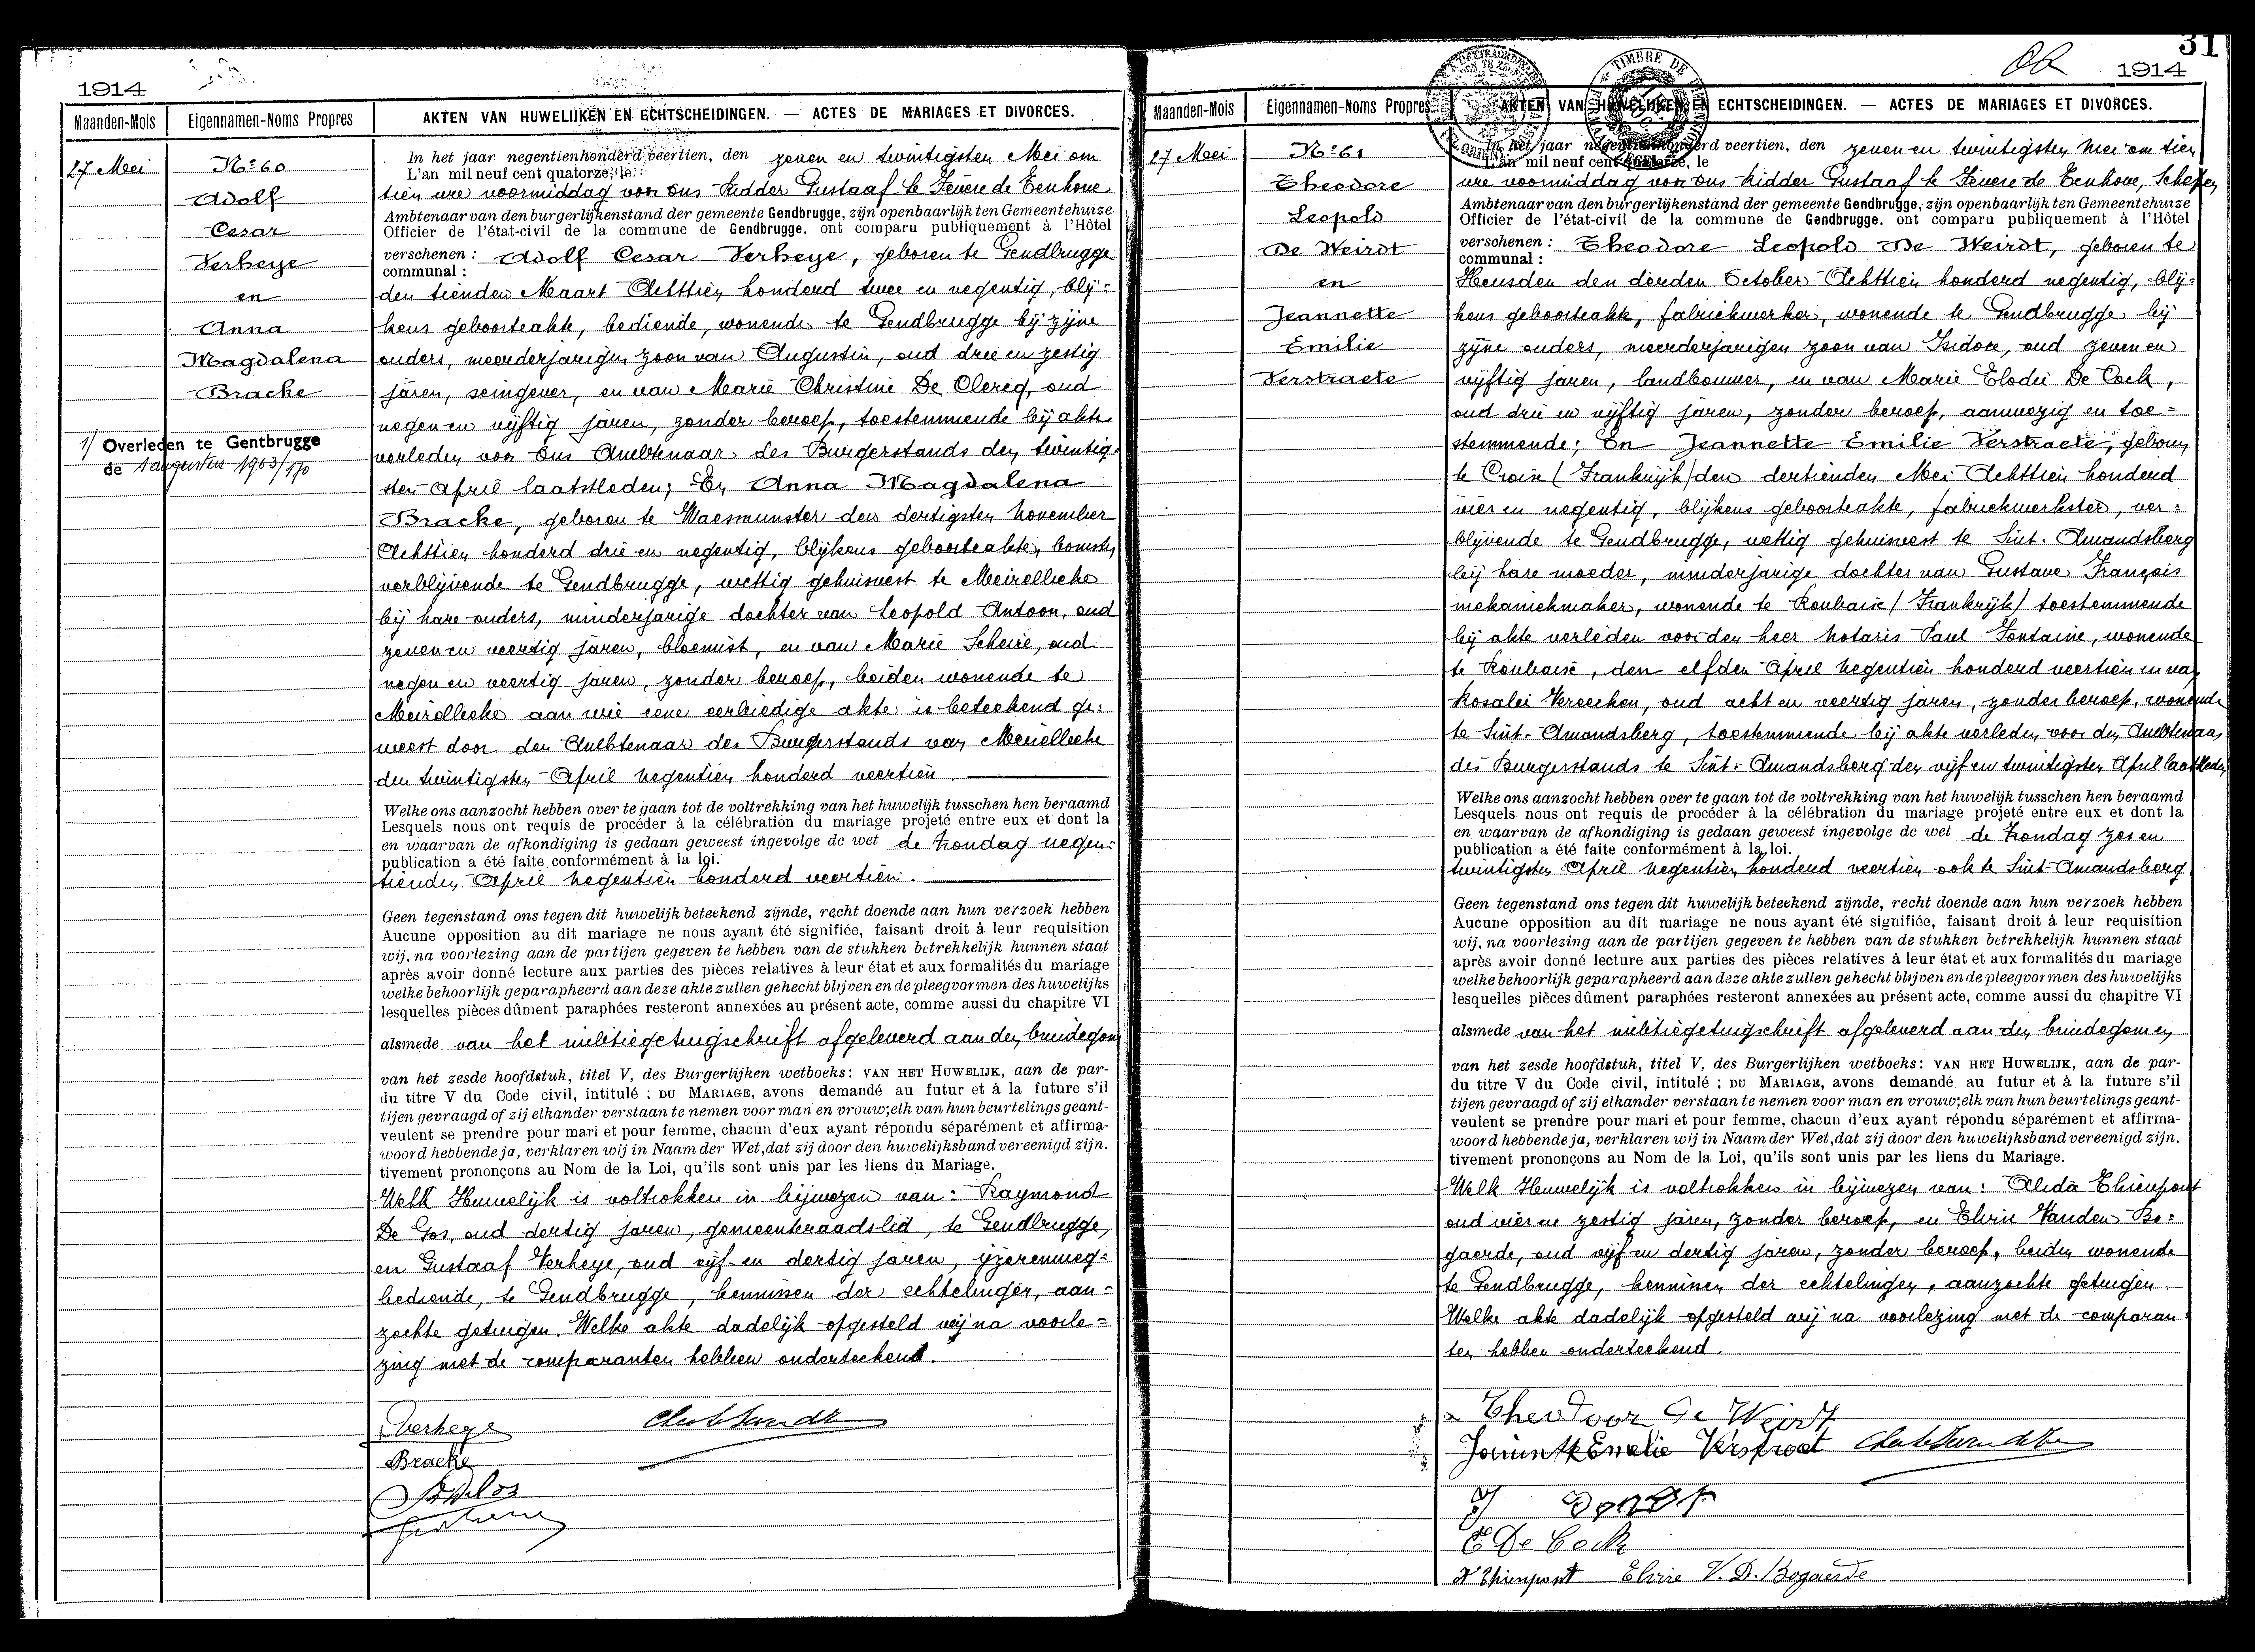 1914
Maanden-Mois
Eigennamen-Noms Propres
AKTEN VAN HUWELIJKEN EN ECHTSCHEIDINGEN. — ACTES DE MARIAGES ET DIVORCES.
27 Mei
Nº 60
Adolf
Cesar
Verheye
en
Anna
Magdalena
Bracke
1/ Overleden te Gentbrugge
de 1 augustus 1963/170
In het jaar negentienhonderd veertien, den zeven en twintigsten Mei om
L'an mil neuf cent quatorze, le
tien ure voormiddag voor ons Ridder Gustaaf le Fevere de Tenhove
Ambtenaar van den burgerlijkenstand der gemeente Gendbrugge, zijn openbaarlijk ten Gemeentehuize
Officier de l'état-civil de la commune de Gendbrugge. ont comparu publiquement à l'Hôtel
verschenen : Adolf Cesar Verheye, geboren te Gendbrugge
communal :
den tienden Maart Achttien honderd twee en negentig, blij=
kens geboorteakte, bediende, wonende te Gendbrugge bij zijne
ouders, meerderjarigen zoon van Augustin, oud drie en zestig
jaren, seingever, en van Marie Christine De Clercq, oud
negen en vijftig jaren, zonder beroep, toestemmende bij akte
verleden voor Ons Ambtenaar des Burgerstands den twintig=
sten April laatstleden; En Anna Magdalena
Bracke, geboren te Waesmunster den dertigsten November
Achttien honderd drie en negentig, blijkens geboorteakte,
verblijvende te Gendbrugge, wettig gehuisvest te Meirelbeke
bij hare ouders, minderjarige dochter van Leopold Antoon, oud
zeven en veertig jaren, bloemist, en van Marie Scheire, oud
negen en veertig jaren, zonder beroep, beiden wonende te
Meirelbeke aan wie eene eerbiedige akte is beteekend ge=
weest door den Ambtenaar des Burgerstands van Meirelbeke
den twintigsten April negentien honderd veertien
Welke ons aanzocht hebben over te gaan tot de voltrekking van het huwelijk tusschen hen beraamd
Lesquels nous ont requis de procéder à la célébration du mariage projeté entre eux et dont la
en waarvan de afkondiging is gedaan geweest ingevolge de wet de Zondag negen=
publication a été faite conformément à la loi.
tienden April negentien honderd veertien.
Geen tegenstand ons tegen dit huwelijk beteekend zijnde, recht doende aan hun verzoek hebben
Aucune opposition au dit mariage ne nous ayant été signifiée, faisant droit à leur requisition
wij, na voorlezing aan de partijen gegeven te hebben van de stukken betrekkelijk hunnen staat
après avoir donné lecture aux parties des pièces relatives à leur état et aux formalités du mariage
welke behoorlijk geparapheerd aan deze akte zullen gehecht blijven en de pleegvormen des huwelijks
lesquelles pièces dûment paraphées resteront annexées au présent acte, comme aussi du chapitre VI
alsmede van het militiegetuigschrift afgeleverd aan den bruidegom
van het zesde hoofdstuk, titel V, des Burgerlijken wetboeks: VAN HET HUWELIJK, aan de par-
du titre V du Code civil, intitulé : DU MARIAGE, avons demandé au futur et à la future s'il
tijen gevraagd of zij elkander verstaan te nemen voor man en vrouw; elk van hun beurtelings geant-
veulent se prendre pour mari et pour femme, chacun d'eux ayant répondu séparément et affirma-
woord hebbende ja, verklaren wij in Naam der Wet, dat zij door den huwelijksband vereenigd zijn.
tivement prononçons au Nom de la Loi, qu'ils sont unis par les liens du Mariage.
Welk Huwelijk is voltrokken in bijwezen van: Raymond
De Gos, oud dertig jaren, gemeenteraadslid, te Gendbrugge,
en Gustaaf Verheye, oud vijf en dertig jaren, ijzerenweg=
bediende, te Gendbrugge, kennissen der echtelingen, aan=
zochte getuigen. Welke akte dadelijk opgesteld wij na voorle=
zing met de comparanten hebben onderteekend.
Verheye
Bracke
31
1914
Maanden-Mois
Eigennamen-Noms Propres
AKTEN VAN HUWELIJKEN EN ECHTSCHEIDINGEN. — ACTES DE MARIAGES ET DIVORCES.
27 Mei
Nº 61
Theodore
Leopold
De Weirdt
en
Jeannette
Emilie
Verstraete
In het jaar negentienhonderd veertien, den zeven en twintigsten Mei om tien
L'an mil neuf cent quatorze, le
ure voormiddag voor ons Ridder Gustaaf le Fevere de Tenhove, Schepen
Ambtenaar van den burgerlijkenstand der gemeente Gendbrugge, zijn openbaarlijk ten Gemeentehuize
Officier de l'état-civil de la commune de Gendbrugge. ont comparu publiquement à l'Hôtel
verschenen : Theodore Leopold De Weirdt, geboren te
communal :
Heusden den derden October Achttien honderd negentig, blij=
kens geboorteakte, fabriekwerker, wonende te Gendbrugge bij
zijne ouders, meerderjarigen zoon van Isidore, oud zeven en
vijftig jaren, landbouwer, en van Marie Elodie De Cock,
oud drie en vijftig jaren, zonder beroep, aanwezig en toe=
stemmende; En Jeannette Emilie Verstraete, geboren
te Croix (Frankrijk) den dertienden Mei Achttien honderd
vier en negentig, blijkens geboorteakte, fabriekwerkster, ver=
blijvende te Gendbrugge, wettig gehuisvest te Sint-Amandsberg
bij hare moeder, minderjarige dochter van Gustave François
mekaniekmaker, wonende te Roubaix (Frankrijk) toestemmende
bij akte verleden voor den heer Notaris Paul Fontaine, wonende
te Roubaix, den elfden April negentien honderd veertien en van
Rosalie Vereecken, oud acht en veertig jaren, zonder beroep, wonende
te Sint-Amandsberg, toestemmende bij akte verleden voor den Ambtenaar
des Burgerstands te Sint-Amandsberg den vijf en twintigsten April laatstleden
Welke ons aanzocht hebben over te gaan tot de voltrekking van het huwelijk tusschen hen beraamd
Lesquels nous ont requis de procéder à la célébration du mariage projeté entre eux et dont la
en waarvan de afkondiging is gedaan geweest ingevolge de wet de Zondag zes en
publication a été faite conformément à la loi.
twintigsten April negentien honderd veertien ook te Sint-Amandsberg
Geen tegenstand ons tegen dit huwelijk beteekend zijnde, recht doende aan hun verzoek hebben
Aucune opposition au dit mariage ne nous ayant été signifiée, faisant droit à leur requisition
wij, na voorlezing aan de partijen gegeven te hebben van de stukken betrekkelijk hunnen staat
après avoir donné lecture aux parties des pièces relatives à leur état et aux formalités du mariage
welke behoorlijk geparapheerd aan deze akte zullen gehecht blijven en de pleegvormen des huwelijks
lesquelles pièces dûment paraphées resteront annexées au présent acte, comme aussi du chapitre VI
alsmede van het militiegetuigschrift afgeleverd aan den bruidegom en
van het zesde hoofdstuk, titel V, des Burgerlijken wetboeks: VAN HET HUWELIJK, aan de par-
du titre V du Code civil, intitulé : DU MARIAGE, avons demandé au futur et à la future s'il
tijen gevraagd of zij elkander verstaan te nemen voor man en vrouw; elk van hun beurtelings geant-
veulent se prendre pour mari et pour femme, chacun d'eux ayant répondu séparément et affirma-
woord hebbende ja, verklaren wij in Naam der Wet, dat zij door den huwelijksband vereenigd zijn.
tivement prononçons au Nom de la Loi, qu'ils sont unis par les liens du Mariage.
Welk Huwelijk is voltrokken in bijwezen van: Alida Thienpont
oud vier en zestig jaren, zonder beroep, en Elvire Vanden Bo=
gaerde, oud vijf en dertig jaren, zonder beroep, beiden wonende
te Gendbrugge, kennissen der echtelingen, aanzochte getuigen.
Welke akte dadelijk opgesteld wij na voorlezing met de comparan=
ten hebben onderteekend.
Theodoor De Weirdt
Emelie Verstraet
E De Cock
A Thienpont Elvire V. D. Bogaerde